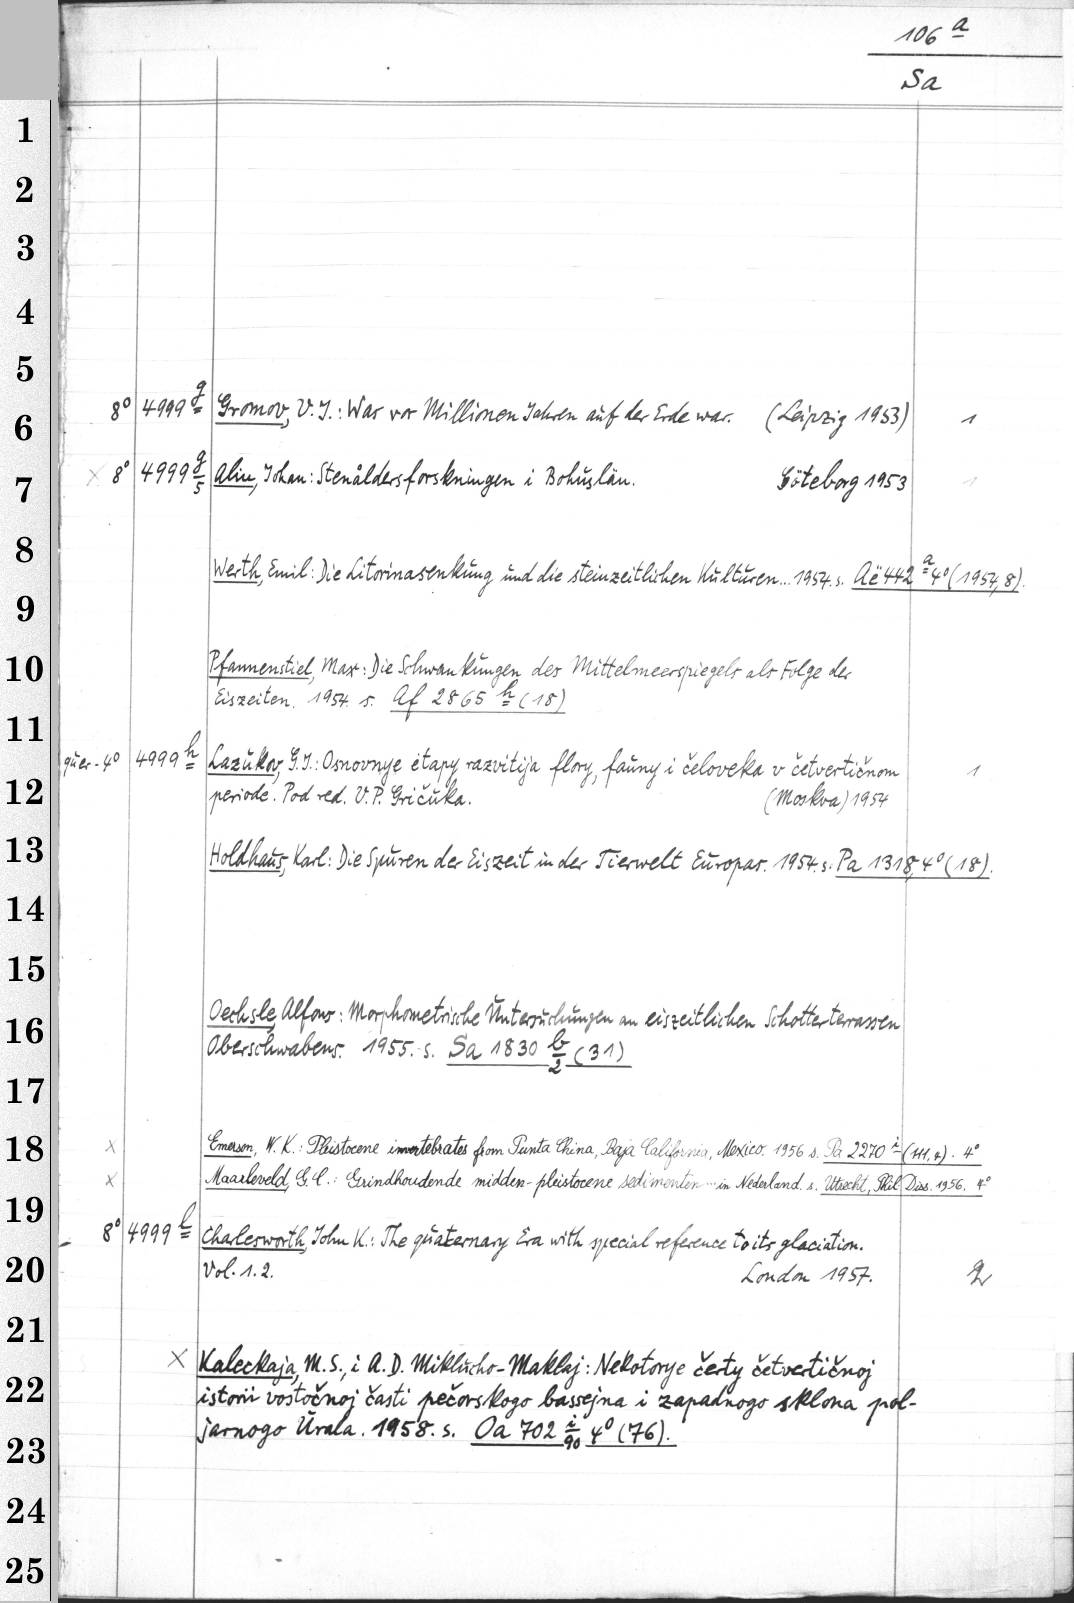 106 a
Sa
1
2
3
4
5
6
7
8
9
10
11
12
13
14
15
16
17
18
19
20
21
22
23
24
25
8° 4999 g Gromov, V. I.: War vor Millionen Jahren auf der Erde war. (Leipzig 1953) 1
× 8° 4999 g/5 Alin, Johan: Stenåldersforskningen i Bohuslän. Göteborg 1953 1
Werth, Emil: Die Litorinasenkung und die steinzeitlichen Kulturen... 1954. s. Aë 442 a 4° (1954, 8).
Pfannenstiel, Max: Die Schwankungen des Mittelmeerspiegels als Folge der
Eiszeiten. 1954. s. Af 2865 h (18)
quer-4° 4999 h Lazukov, G. I.: Osnovnye ėtapy razvitija flory, fauny i čeloveka v četvertičnom 1
periode. Pod red. V. P. Gričuka. (Moskva) 1954
Holdhaus, Karl: Die Spuren der Eiszeit in der Tierwelt Europas. 1954. s. Pa 1318, 4° (18).
Oechsle, Alfons: Morphometrische Untersuchungen an eiszeitlichen Schotterterrassen
Oberschwabens. 1955. s. Sa 1830 b/2 (31)
× Emerson, W. K.: Pleistocene invertebrates from Punta China, Baja California, Mexico. 1956 s. Pa 2270 i (111, 4). 4°
× Maarleveld, G. C.: Grindhoudende midden-pleistocene sedimenten ... in Nederland. s. Utrecht, Phil. Diss. 1956. 4°
8° 4999 l Charlesworth, John K.: The quaternary Era with special reference to its glaciation.
Vol. 1. 2. London 1957. 2
× Kaleckaja, M. S., i A. D. Miklucho-Maklaj: Nekotorye čerty četvertičnoj
istorii vostočnoj časti pečorskogo bassejna i zapadnogo sklona pol-
jarnogo Urala. 1958. s. Oa 702 i/90 4° (76).